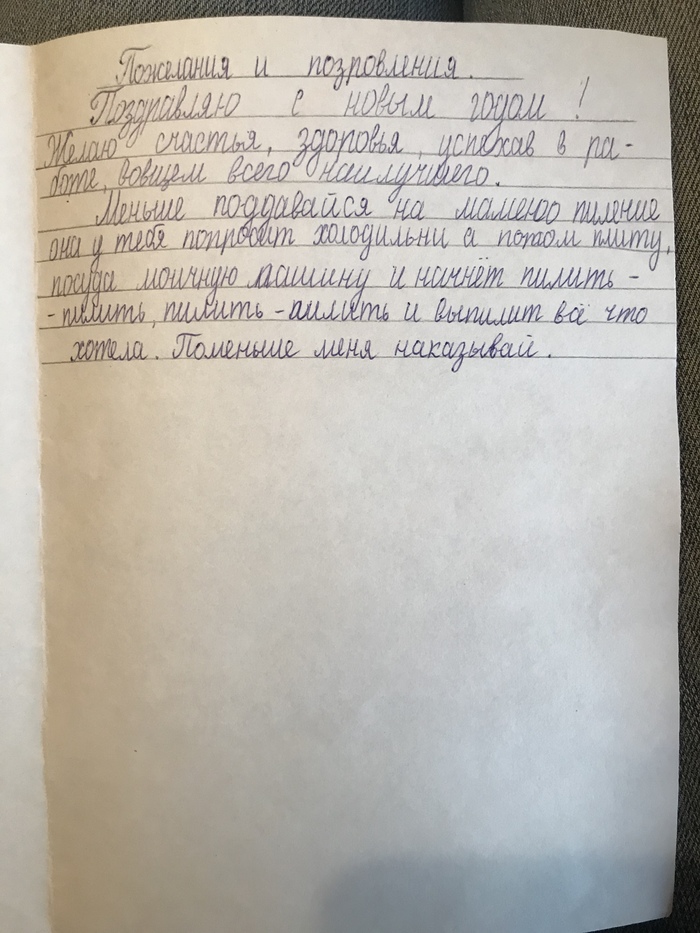 Пожелания и позровления.
Поздравляю с новым годом!
Желаю счастья, здоровья, успехав в ра-
боте, вовщем всего наилучшего.
Меньше поддавайся на маменo пиление
она у тебя попросит холодильни а потом плиту,
посуда моичную машину и начнёт пилить-
-пилить, пилить-пилить и выпилит всё что
хотела. Поменьше меня наказывай.